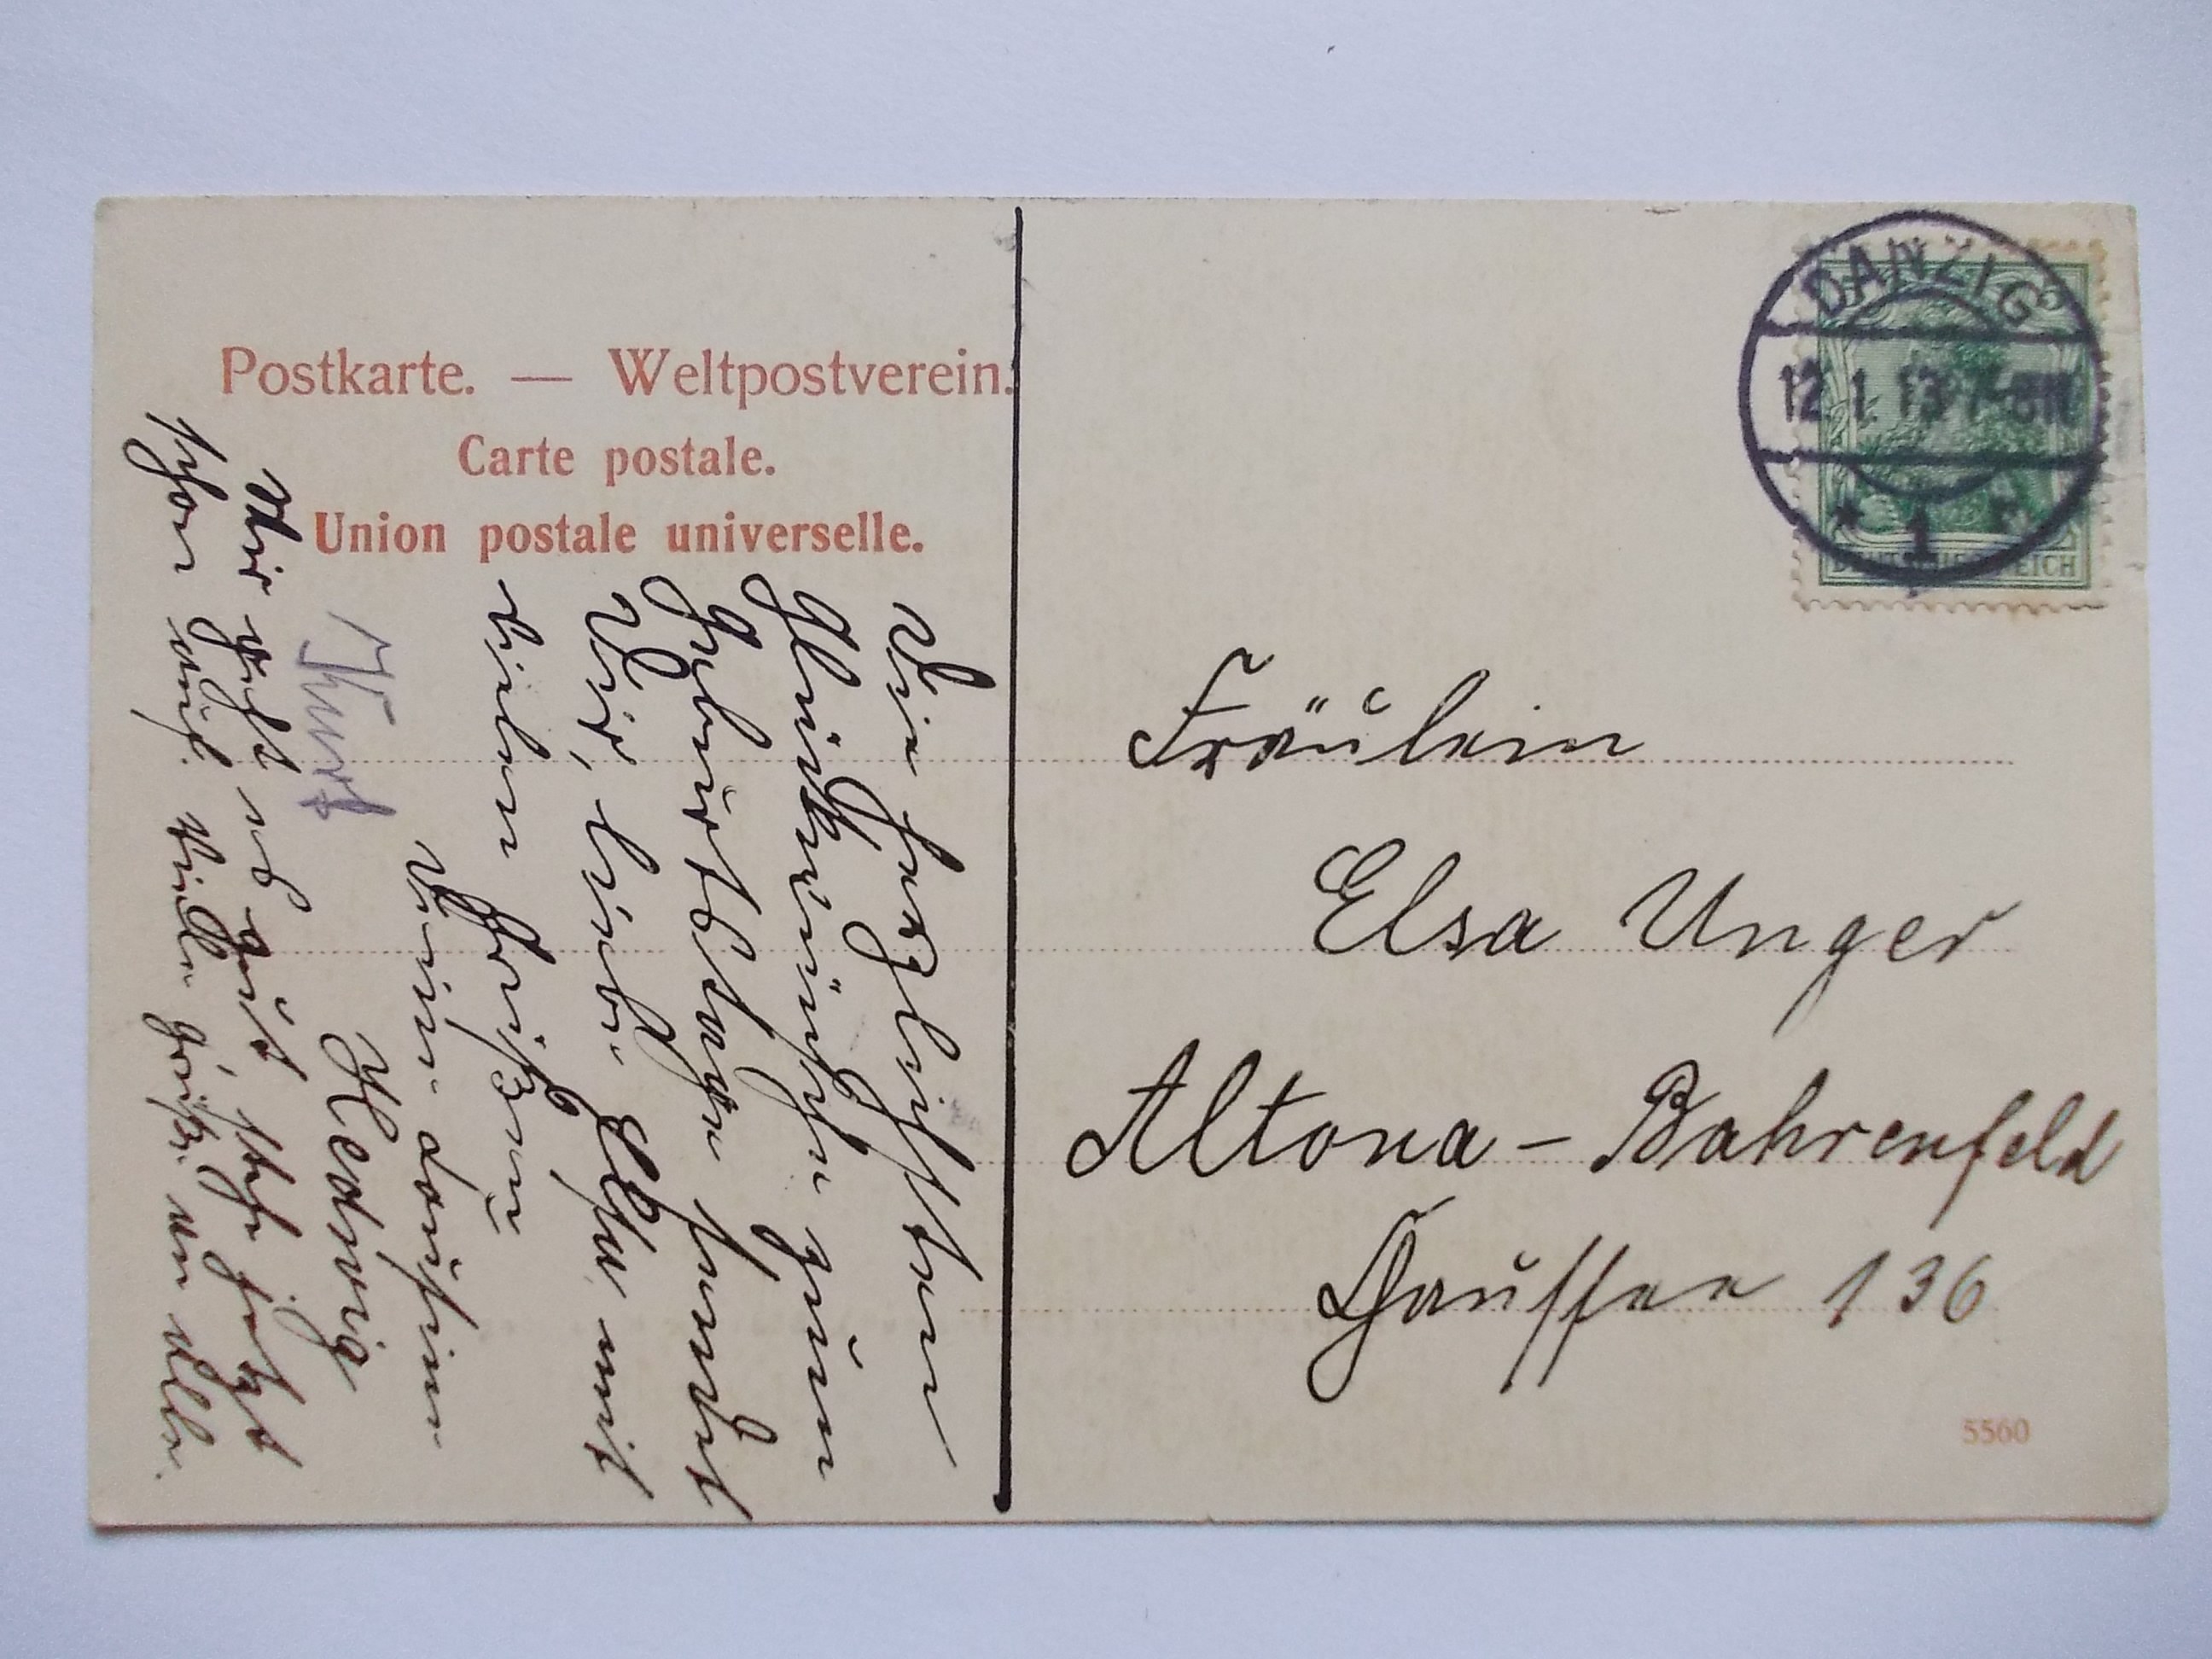 Postkarte. — Weltpostverein.
Carte postale.
Union postale universelle.
Die herzlichsten
Glückwünsche zum
Geburtstage sendet
Dir, liebe Elsa mit
vielen Grüßen
Deine Cousine
Hedwig
Mir geht es gut, stehe jetzt
schon auf. Viele Grüße an alle.
DANZIG
12.1.13.7-8N
* 1 *
DEUTSCHES REICH
Fräulein
Elsa Unger
Altona - Bahrenfeld
Chaussee 136
5560